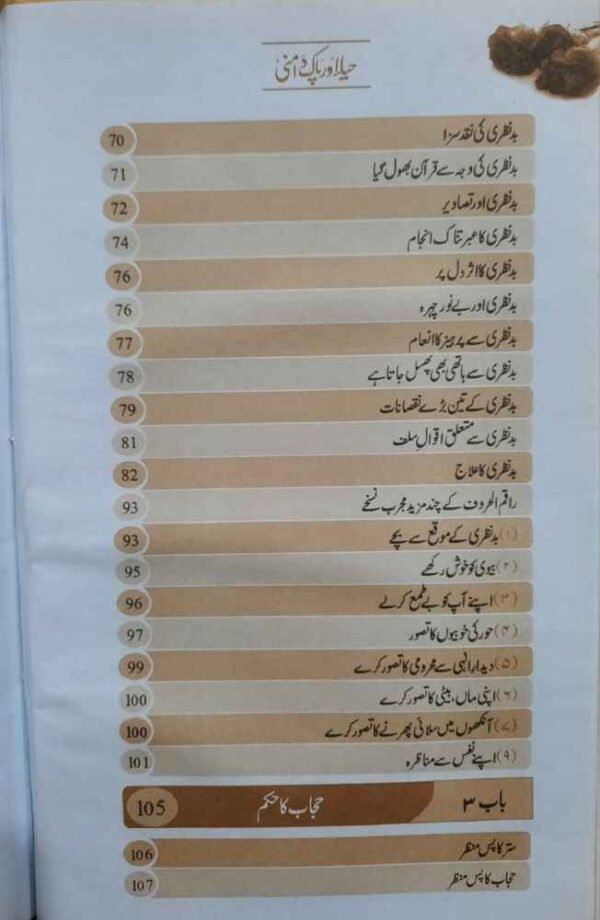 حیاء اور پاک دامنی
بدنظری کی نقد سزا 70
بدنظری کی وجہ سے قرآن بھول گیا 71
بدنظری اور تصاویر 72
بدنظری کا عبرتناک انجام 74
بدنظری کا اثر دل پر 76
بدنظری اور بے نور چہرہ 76
بدنظری سے پرہیز کا انعام 77
بدنظری سے ہاتھی بھی پھسل جاتا ہے 78
بدنظری کے تین بڑے نقصانات 79
بدنظری سے متعلق اقوال سلف 81
بدنظری کا علاج 82
راقم الحروف کے چند مزید مجرب نسخے 93
(۱) بدنظری کے موقع سے بچے 93
(۲) بیوی کو خوش رکھے 95
(۳) اپنے آپ کو بے طمع کرلے 96
(۴) حور کی خوبیوں کا تصور 97
(۵) دیدار الٰہی سے محرومی کا تصور کرے 99
(۶) اپنی ماں، بیٹی کا تصور کرے 100
(۷) آنکھوں میں سلائی پھرنے کا تصور کرے 100
(۹) اپنے نفس سے مناظرہ 101
باب ۳ حجاب کا حکم 105
ستر کا پس منظر 106
حجاب کا پس منظر 107